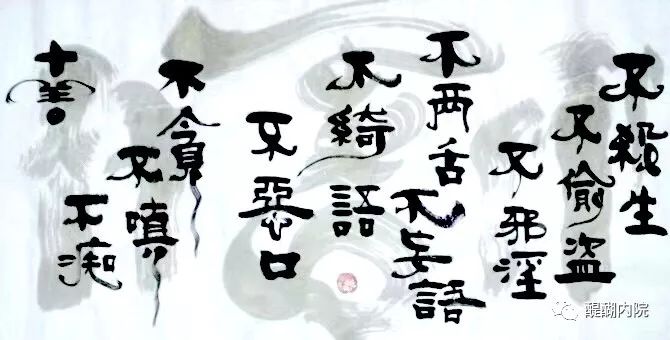 不殺生
不偷盗
不邪淫
不两舌
不妄語
不綺語
不惡口
不貪
不嗔
不痴
十善
醍醐内院